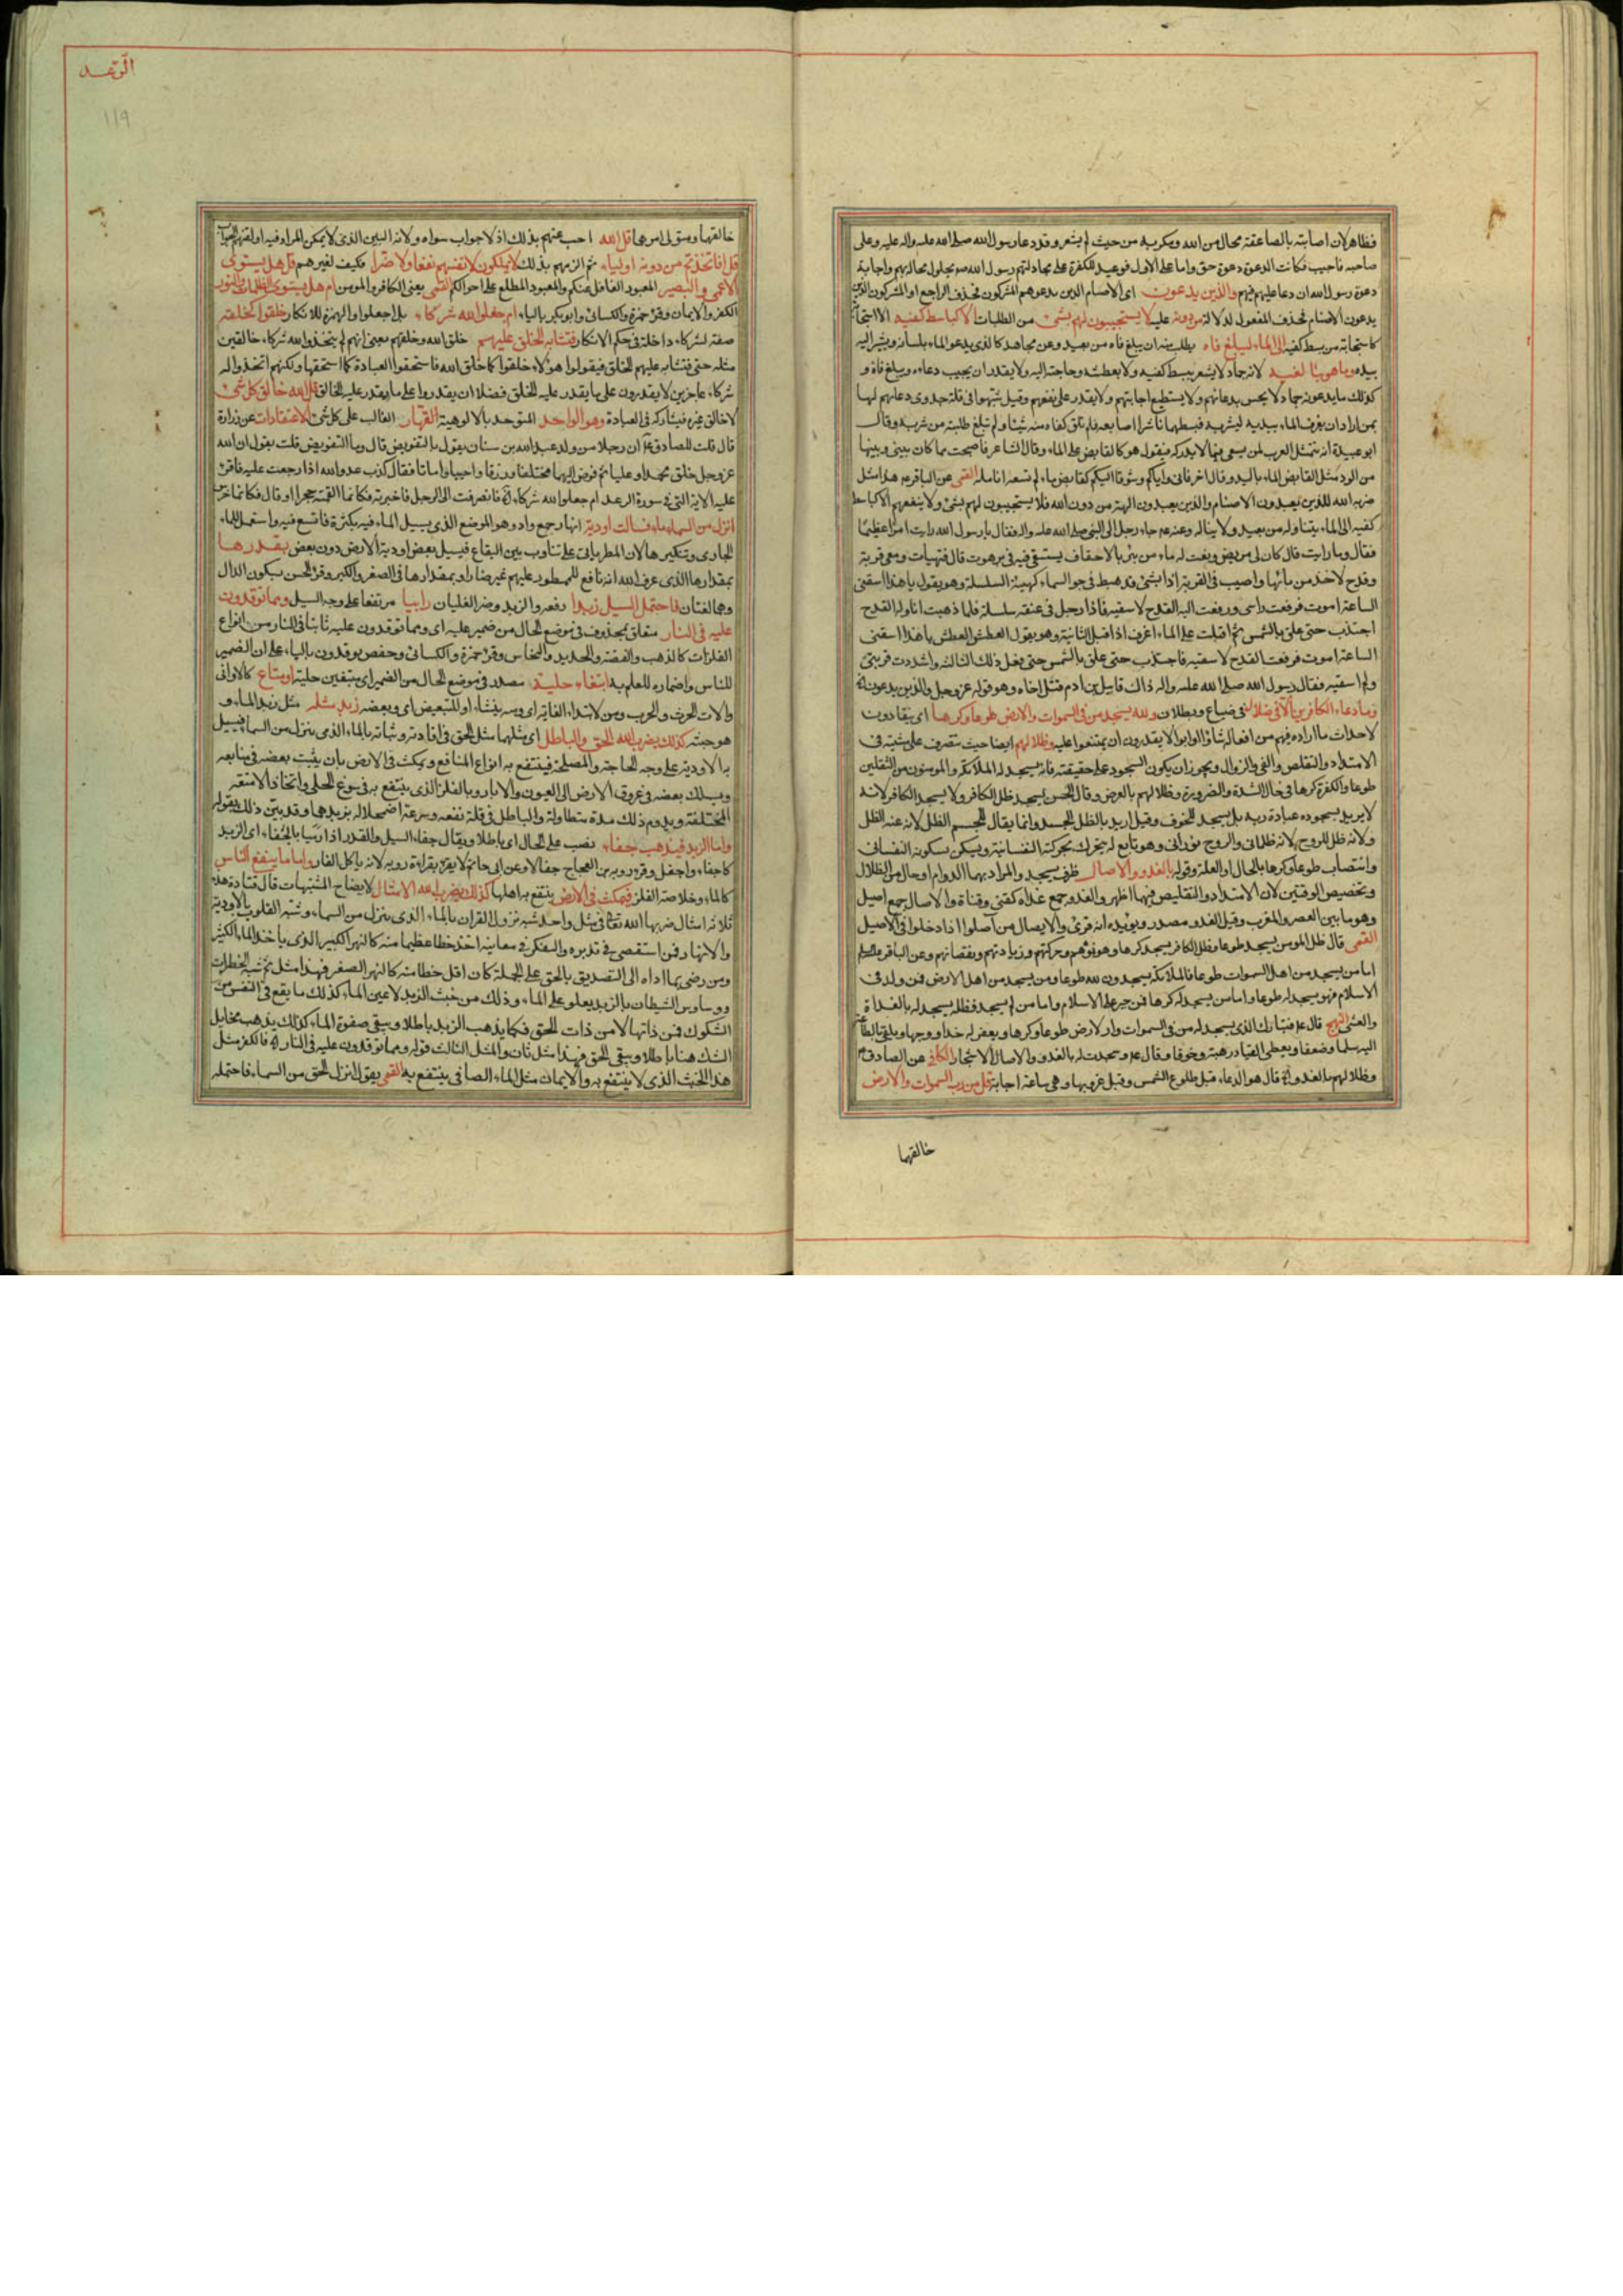 فظاهر لان اصابته بالصاعقة محال من الله ومكر به من حيث لم يشعر وقد دعا رسول الله صلى الله عليه واله عليه وعلى
صاحبه فاجيب فكانت الدعوة دعوة حق واما على الاول فوعيد للكفرة على مجادلتهم رسول الله صم بحلول محاله بهم واجابة
دعوة رسول الله ان دعا عليهم فيهم والذين يدعون اى الاصنام الذين يدعوهم المشركون فحذف الراجع او المشركون الذين
يدعون الاصنام فحذف المفعول لدلالة من دونه عليه لا يستجيبون لهم بشئ من الطلبات الا كباسط كفيه الا استجابة
كاستجابة من بسط كفيه الى الماء ليبلغ فاه يطلب منه ان يبلغ فاه من بعيد وعن مجاهد كالذى يدعو الماء بلسانه ويشير اليه
بيده وما هو ببالغه لانه جماد لا يشعر ببسط كفيه ولا بعطشه وحاجته اليه ولا يقدر ان يجيب دعاءه ويبلغ فاه و
كذلك ما يدعونه جماد لا يحس بدعائهم ولا يستطيع اجابتهم ولا يقدر على نفعهم وقيل شبهوا فى قلة جدوى دعائهم لها
بمن اراد ان يغرف الماء بيديه ليشربه فبسطهما ناشرا اصابعه فلم تلق كفاه منه شيئا ولم تبلغ طلبته من شربه وقال
ابو عبيدة انه يتمثل العرب لمن يسعى فيما لا يدركه فيقول هو كالقابض على الماء وقال الشاعر فاصبحت مما كان بينى وبينها
من الود مثل القابض الماء باليد وقال اخر فانى واياكم وشوقا اليكم كقابض ماء لم تسعه انامله القمى عن الباقر عم هذا مثل
ضربه الله للذين يعبدون الاصنام والذين يعبدون الهة من دون الله فلا يستجيبون لهم بشئ ولا ينفعهم الا كباسط
كفيه الى الماء يتناوله من بعيد ولا يناله وعنه عم جاء رجل الى النبى صلى الله عليه واله فقال يا رسول الله رايت امرا عظيما
فقال وما رايت قال كان لى مريض ونعت له ماء من بئر بالاحقاف يستشفى به فى برهوت قال فتهيات ومعى قربة
وقدح لاخذ من مائها واصب فى القربة اذا بشئ قد هبط فى جو السماء كهيئة السلسلة وهو يقول يا هذا اسقنى
الساعة اموت فرفعت راسى ورفعت اليه القدح لاسقيه فاذا رجل فى عنقه سلسلة فلما ذهبت اناوله القدح
اجتذب حتى علق بالشمس ثم اقبلت على الماء اغرف اذ اقبل الثانية وهو يقول العطش العطش يا هذا اسقنى
الساعة اموت فرفعت القدح لاسقيه فاجتذب حتى علق بالشمس حتى فعل ذلك الثالثة واشددت قربتى
ولم اسقيه فقال رسول الله صلى الله عليه واله ذاك قابيل بن ادم قتل اخاه وهو قوله عز وجل والذين يدعون
وما دعاء الكافرين الا فى ضلال فى ضياع وبطلان ولله يسجد من فى السموات والارض طوعا وكرها اى ينقادون
لاحداث ما اراده فيهم من افعاله شاؤا او ابوا لا يقدرون ان يمتنعوا عليه وظلالهم ايضا حيث تتصرف على مشيته فى
الامتداد والتقلص والفئ والزوال ويجوز ان يكون السجود على حقيقته فانه يسجد له الملائكة والمومنون من الثقلين
طوعا والكفرة كرها فى حال الشدة والضرورة وظلالهم بالعرض وقال الحسن يسجد ظل الكافر ولا يسجد الكافر لانه
لا يريد بسجوده عبادة ربه بل يسجد للخوف وقيل اريد بالظل الجسد وانما يقال للجسم الظل لانه عنه الظل
ولانه ظل للروح لانه ظلمانى والروح نورانى وهو تابع له يتحرك بحركته النفسانية ويسكن بسكونه النفسانى
وانتصاب طوعا وكرها بالحال او العلة وقوله بالغدو والاصال ظرف يسجد والمراد بهما الدوام او حال من الظلال
وتخصيص الوقتين لان الامتداد والتقليص فيها اظهر والغدو جمع غداة كقنى وقناة والاصال جمع اصيل
وهو ما بين العصر والمغرب وقيل الغدو مصدر ويؤيده انه قرئ والايصال من آصلوا اذا دخلوا فى الاصيل
القمى قال ظل المومن يسجد طوعا وظل الكافر يسجد كرها وهو نموهم وحركتهم وزيادتهم ونقصانهم وعن الباقر
اما من يسجد من اهل السموات طوعا فالملائكة يسجدون لله طوعا ومن يسجد من اهل الارض فمن ولد فى
الاسلام فهو يسجد له طوعا واما من يسجد له كرها فمن جبر على الاسلام واما من لم يسجد فظله يسجد له بالغداة
والعشى النهج قال عم فتبارك الذى يسجد له من فى السموات والارض طوعا وكرها ويعفر له خدا ووجها ويلقى بالطاعة
اليه سلما وضعفا ويعطى القياد رهبة وخوفا وقال عم وسجدت له بالغدو والاصال الاشجار الكافى عن الصادق عم
وظلالهم بالغدو قال هو الدعاء قبل طلوع الشمس وقبل غروبها وهى ساعة اجابة قل من رب السموات والارض
خالقها
الرعد
١١٩
خالقهما ومتولى امرهما قل الله اجب عنهم بذلك اذ لا جواب سواه ولانه البين الذى لا يمكن المراء فيه او لقنهم الجواب
قل افاتخذتم من دونه اولياء ثم الزمهم بذلك لا يملكون لانفسهم نفعا ولا ضرا فكيف لغيرهم قل هل يستوى
الاعمى والبصير المعبود الغافل عنكم والمعبود المطلع على احوالكم القمى يعنى الكافر والمومن ام هل يستوى الظلمات والنور
الكفر والايمان وقرء حمزة والكسائى وابو بكر بالياء ام جعلوا لله شركاء بل اجعلوا والهمزة للانكار خلقوا كخلقه
صفة لشركاء داخلة فى حكم الانكار فتشابه الخلق عليهم خلق الله وخلقهم يعنى انهم لم يتخذوا لله شركاء خالقين
مثله حتى يتشابه عليهم الخلق فيقولوا هؤلاء خلقوا كما خلق الله فاستحقوا العبادة كما استحقها ولكنهم اتخذوا له
شركاء عاجزين لا يقدرون على ما يقدر عليه الخلق فضلا ان يقدروا على ما يقدر عليه الخالق قل الله خالق كل شئ
لا خالق غيره فيشاركه فى العبادة وهو الواحد المتوحد بالالوهية القهار الغالب على كل شئ الاعتقادات عن زرارة
قال قلت للصادق عم ان رجلا من ولد عبد الله بن سنان يقول بالتفويض قال وما التفويض قلت يقول ان الله
عز وجل خلق محمدا وعليا ثم فوض اليهما فخلقا ورزقا واحييا واماتا فقال كذب عدو الله اذا رجعت عليه فاقرء
عليه الاية التى فى سورة الرعد ام جعلوا لله شركاء فانصرفت الى الرجل فاخبرته فكانما القمته حجرا او قال فكانما خرس
انزل من السماء ماء فسالت اودية انهار جمع واد وهو الموضع الذى يسيل الماء فيه بكثرة فاتسع فيه واستعمل للماء
الجارى وتنكيرها لان المطر ياتى على تناوب بين البقاع فيسيل بعض اودية الارض دون بعض بقدرها
بمقدارها الذى عرف الله انه نافع للممطور عليهم غير ضار او بمقدارها فى الصغر والكبر وقرء الحسن بسكون الدال
وهما لغتان فاحتمل السيل زبدا رفعه والزبد وضر الغليان رابيا مرتفعا على وجه السيل ومما توقدون
عليه فى النار متعلق بمحذوف فى موضع الحال من ضمير عليه اى ومما توقدون عليه ثابتا فى النار من انواع
الفلزات كالذهب والفضة والحديد والنحاس وقرء حمزة والكسائى وحفص يوقدون بالياء على ان الضمير
للناس واضماره للعلم به ابتغاء حلية مصدر فى موضع الحال من الضمير اى مبتغين حلية او متاع كالاوانى
والات الحرث والحرب ومن لابتداء الغاية اى ومنه ينشاء او للتبعيض اى وبعضه زبد مثله مثل زبد الماء و
هو خبثه كذلك يضرب الله الحق والباطل اى مثلهما مثل الحق فى افادته وثباته بالماء الذى ينزل من السماء فيسيل
به الاودية على وجه الحاجة والمصلحة فينتفع به انواع المنافع ويمكث فى الارض بان يثبت بعضه فى منابعه
ويسلك بعضه فى عروق الارض الى العيون والابار وبالفلز الذى ينتفع به فى صوغ الحلى واتخاذ الامتعة
المختلفة ويدوم ذلك مدة متطاولة والباطل فى قلة نفعه وسرعة اضمحلاله بزبدهما وقد بين ذلك بقوله
واما الزبد فيذهب جفاء نصب على الحال اى باطلا ويقال جفاء السيل والقدر اذا رميا بالجفاء اى الزبد
كاجفاء واجفل وقرء رؤبه بن العجاج جفالا وعن ابى حاتم لا يقرء بقراءة رؤبه لانه ياكل الفار واما ما ينفع الناس
كالماء وخلاصة الفلز فيمكث فى الارض ينتفع به اهلها كذلك يضرب الله الامثال لايضاح المشتبهات قال قتادة هذه
ثلاثة امثال ضربها الله تعالى فى مثل واحد شبه نزول القران بالماء الذى ينزل من السماء وشبه القلوب بالاودية
والانهار فمن استقصى فى تدبره والتفكر فى معانيه اخذ حظا عظيما منه كالنهر الكبير الذى ياخذ الماء الكثير
ومن رضى بما اداه الى التصديق بالحق على الجملة كان اقل حظا منه كالنهر الصغير فهذا مثل ثم شبه الخطرات
ووساوس الشيطان بالزبد يعلو على الماء وذلك من خبث الزبد لا عين الماء كذلك ما يقع فى النفس من
الشكوك فمن ذاتها لا من ذات الحق فكما يذهب الزبد باطلا ويبقى صفوة الماء كذلك يذهب مخايل
الشك هنا باطلا ويبقى الحق فهذا مثل ثان والمثل الثالث قوله ومما توقدون عليه فى النار فالكفر مثل
هذا الخبث الذى لا ينتفع به والايمان مثل الماء الصافى ينتفع به القمى يقول انزل الحق من السماء فاحتمله